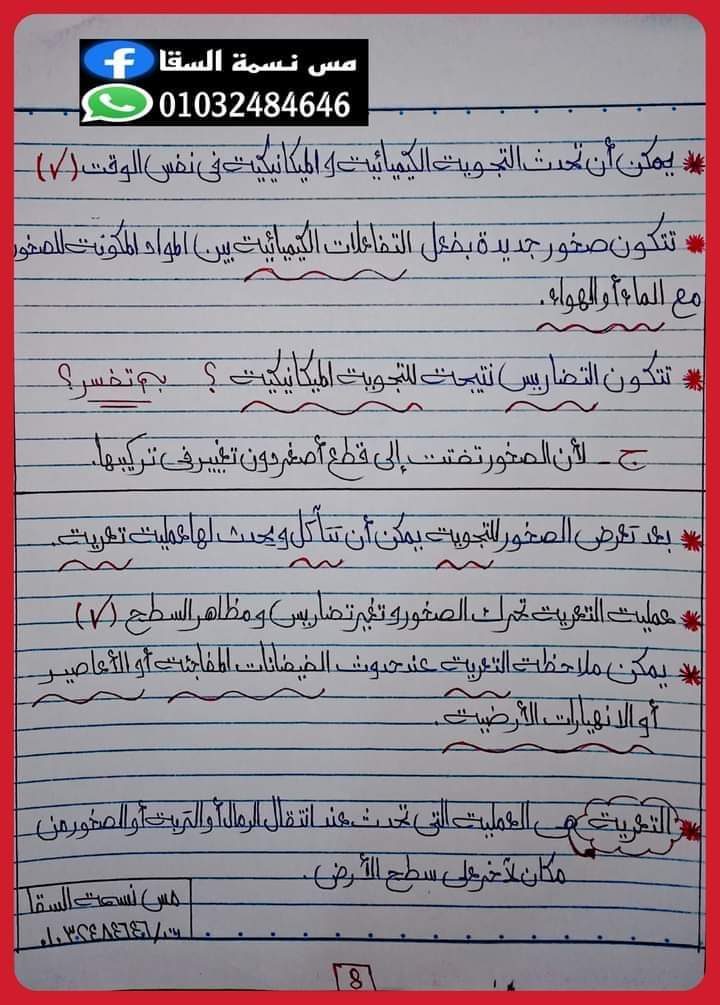 مس نسمة السقا
01032484646
يمكن أن تحدث التجوية الكيميائية و الميكانيكية فى نفس الوقت (√)
تتكون صخور جديدة بفعل التفاعلات الكيميائية بين المواد المكونة للصخور
مع الماء أو الهواء.
تتكون التضاريس نتيجة للتجوية الميكانيكية ؟ بم تفسر ؟
ج - لأن الصخور تفتت إلى قطع أصغر دون تغيير فى تركيبها.
بعد تعرض الصخور للتجوية يمكن أن تتآكل و يحدث لها عملية تعرية.
عملية التعرية تحرك الصخور و تغير تضاريس و مظاهر السطح (√)
يمكن ملاحظة التعرية عند حدوث الفيضانات المفاجئة أو الأعاصير
أو الانهيارات الأرضية.
التعرية هى العملية التى تحدث عند انتقال الرمال أو التربة أو الصخور من
مكان لآخر على سطح الأرض.
مس نسمة السقا
ت/ ٠١٠٣٢٤٨٤٦٤٦
8